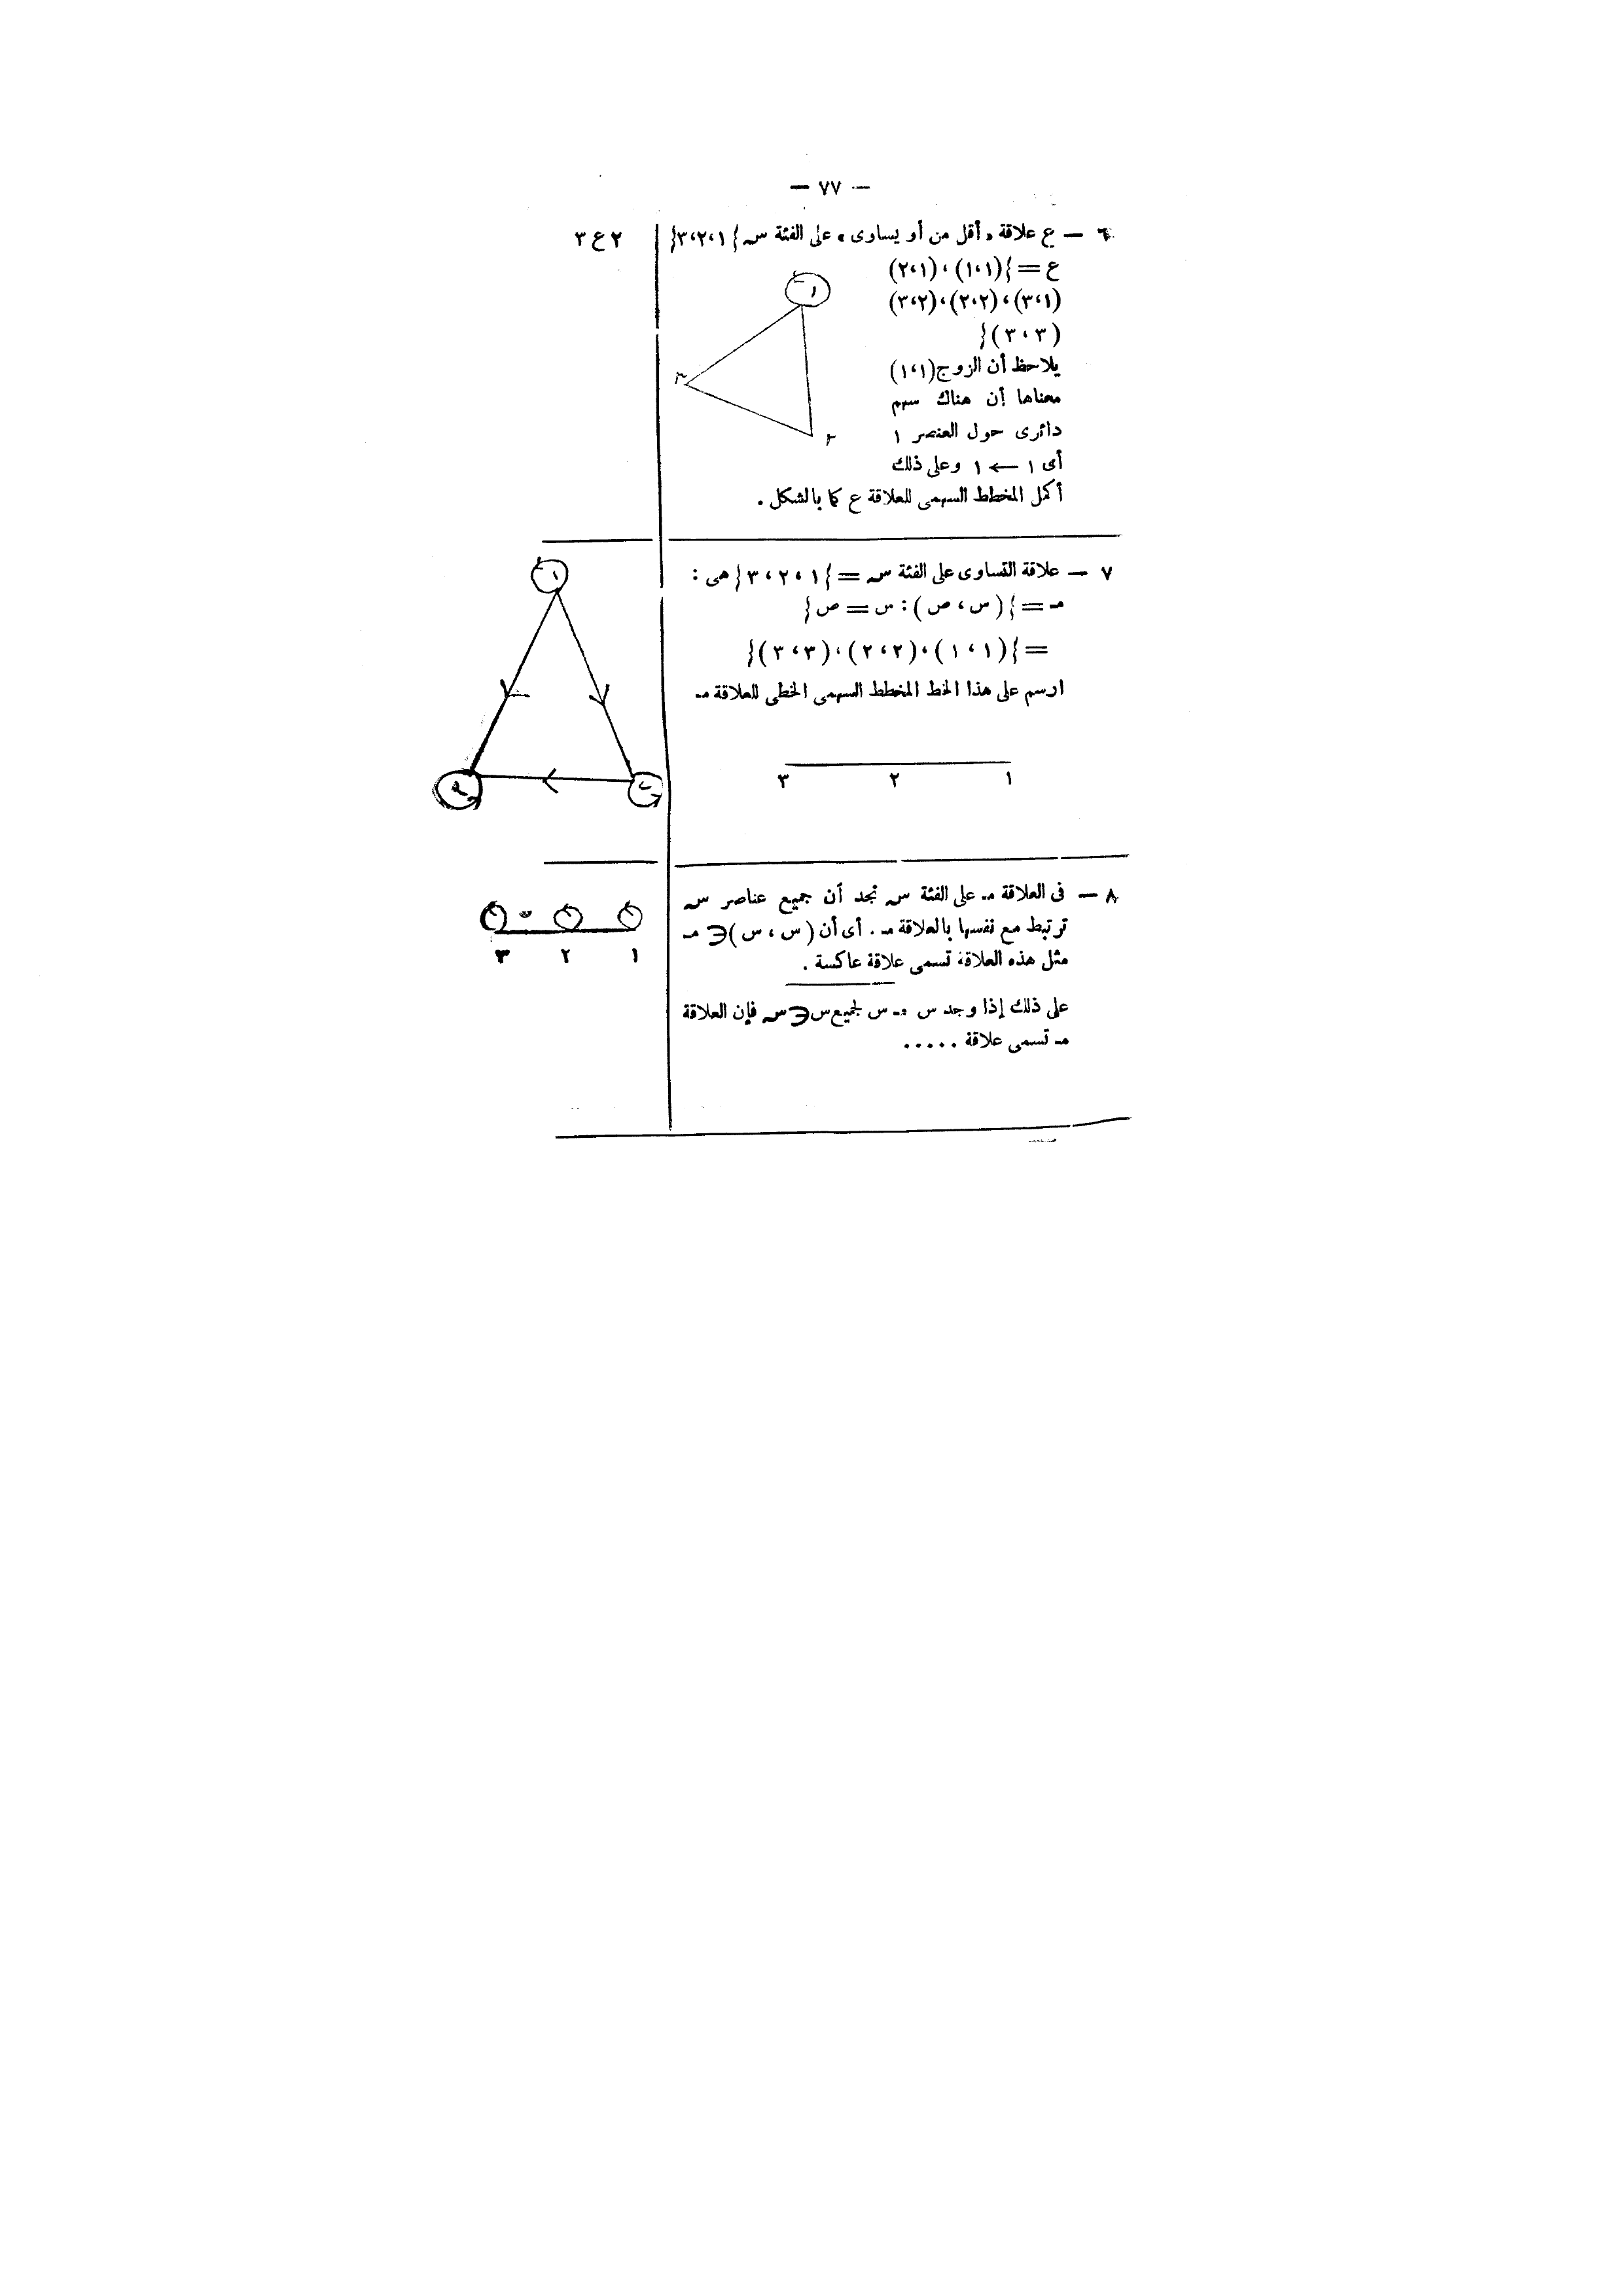 — ٧٧ —
٦ — ع علاقة « أقل من أو يساوى » على الفئة س { ١ ، ٢ ، ٣ }
٢ ع ٣
ع = { ( ١ ، ١ ) ، ( ١ ، ٢ )
( ١ ، ٣ ) ، ( ٢ ، ٢ ) ، ( ٢ ، ٣ )
( ٣ ، ٣ ) }
يلاحظ أن الزوج ( ١ ، ١ )
معناها أن هناك سهم
دائرى حول العنصر ١
أى ١ ← ١ وعلى ذلك
أكمل المخطط السهمى للعلاقة ع كما بالشكل .
١
٣
٢
٧ — علاقة التساوى على الفئة س = { ١ ، ٢ ، ٣ } هى :
مـ = { ( س ، ص ) : س = ص }
= { ( ١ ، ١ ) ، ( ٢ ، ٢ ) ، ( ٣ ، ٣ ) }
ارسم على هذا الخط المخطط السهمى الخطى للعلاقة مـ
١ ٢ ٣
١
٨ — فى العلاقة مـ على الفئة س نجد أن جميع عناصر س
ترتبط مع نفسها بالعلاقة مـ . أى أن ( س ، س ) ∋ مـ
مثل هذه العلاقة تسمى علاقة عاكسة .
على ذلك إذا وجد س مـ س لجميع س ∋ س فإن العلاقة
مـ تسمى علاقة . . . . .
١ ٢ ٣